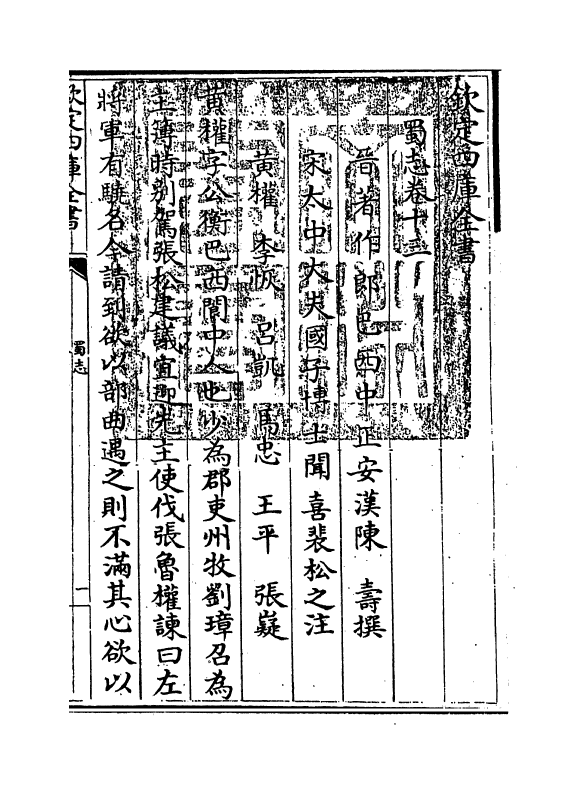 欽定四庫全書
蜀志卷十三
晉著作郎巴西中正安漢陳　壽撰
宋太中大夫國子博士聞喜裴松之注
黃權　李恢　呂凱　馬忠　王平　張嶷
黃權字公衡巴西閬中人也少為郡吏州牧劉璋召為
主簿時別駕張松建議宜迎先主使伐張魯權諫曰左
將軍有驍名今請到欲以部曲遇之則不滿其心欲以
欽定四庫全書
蜀志